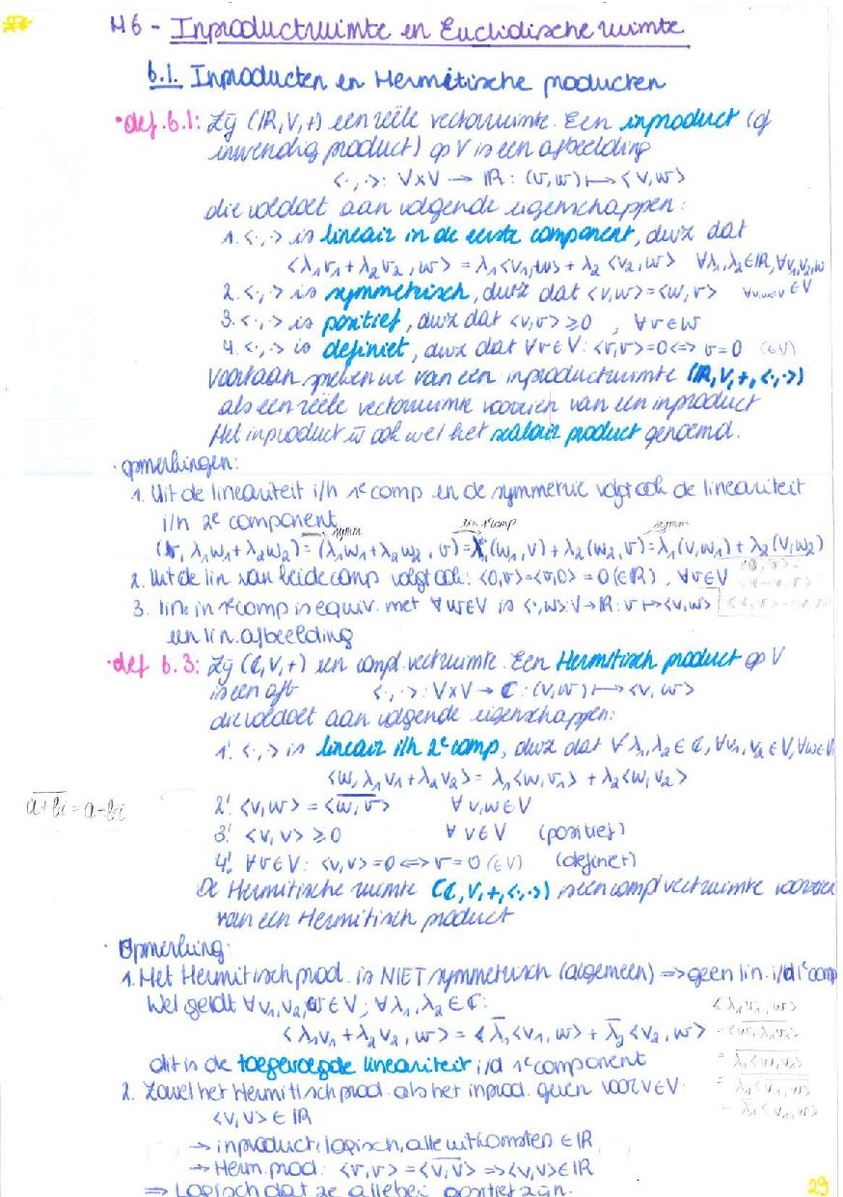 H6 - Inproductruimte en Euclidische ruimte
6.1. Inproducten en Hermitische producten
• def. 6.1: Zij (ℝ,V,+) een reële vectorruimte. Een inproduct (of
inwendig product) op V is een afbeelding
<·,·>: V×V → ℝ : (v,w) ↦ <v,w>
die voldoet aan volgende eigenschappen:
1. <·,·> is lineair in de eerste component, dwz dat
<λ₁v₁+λ₂v₂,w> = λ₁<v₁,w> + λ₂<v₂,w> ∀λ₁,λ₂∈ℝ, ∀v₁,v₂,w
2. <·,·> is symmetrisch, dwz dat <v,w>=<w,v> ∀v,w∈V
3. <·,·> is positief, dwz dat <v,v> ≥0 , ∀v∈W
4. <·,·> is definiet, dwz dat ∀v∈V: <v,v>=0 <=> v=0 (∈V)
Voortaan spreken we van een inproductruimte (ℝ,V,+,<·,·>)
als een reële vectorruimte voorzien van een inproduct
Het inproduct w ook wel het scalair product genoemd.
· opmerkingen:
1. Uit de lineariteit i/h 1e comp en de symmetrie volgt ook de lineariteit
i/h 2e component
symm lin 1e comp symm
(v, λ₁w₁+λ₂w₂) = (λ₁w₁+λ₂w₂, v) = λ₁(w₁,v) + λ₂(w₂,v) = λ₁(v,w₁) + λ₂(v,w₂)
2. Uit de lin van beide comp volgt ook: <0,v>=<v,0> = 0 (∈ℝ) , ∀v∈V
3. lin. in 1e comp is equiv. met ∀w∈V is <·,w>:V→ℝ: v ↦ <v,w>
een lin. afbeelding
• def 6.3: Zij (ℂ,V,+) een compl. vectruimte. Een Hermitisch product op V
is een afb <·,·>: V×V → ℂ : (v,w) ↦ <v,w>
die voldoet aan volgende eigenschappen:
1'. <·,·> is lineair i/h 2e comp, dwz dat ∀λ₁,λ₂∈ℂ, ∀v₁,v₂∈V, ∀w∈V
<w, λ₁v₁+λ₂v₂> = λ₁<w,v₁> + λ₂<w,v₂>
a̅+̅b̅i̅ = a-bi
2'. <v,w> = <̅w̅,̅v̅>̅ ∀v,w∈V
3'. <v,v> ≥0 ∀v∈V (positief)
4'. ∀v∈V: <v,v>=0 <=> v=0 (∈V) (definiet)
De Hermitische ruimte (ℂ,V,+,<·,·>) is een compl vectruimte voorzien
van een Hermitisch product
· Opmerking:
1. Het Hermitisch prod. is NIET symmetrisch (algemeen) => geen lin. i/d 1e comp
Wel geldt ∀v₁,v₂,w∈V; ∀λ₁,λ₂∈ℂ:
<λ₁v₁+λ₂v₂,w> = λ̅₁<v₁,w> + λ̅₂<v₂,w>
dit is de toegevoegde lineariteit i/d 1e component
2. Zowel het Hermitisch prod. als het inprod. geven voor v∈V
<v,v>∈ℝ
→ inproduct: logisch, alle uitkomsten ∈ℝ
→ Herm. prod: <v,v> = <̅v̅,̅v̅>̅ => <v,v>∈ℝ
=> Logisch dat ze allebei positief zijn.
29